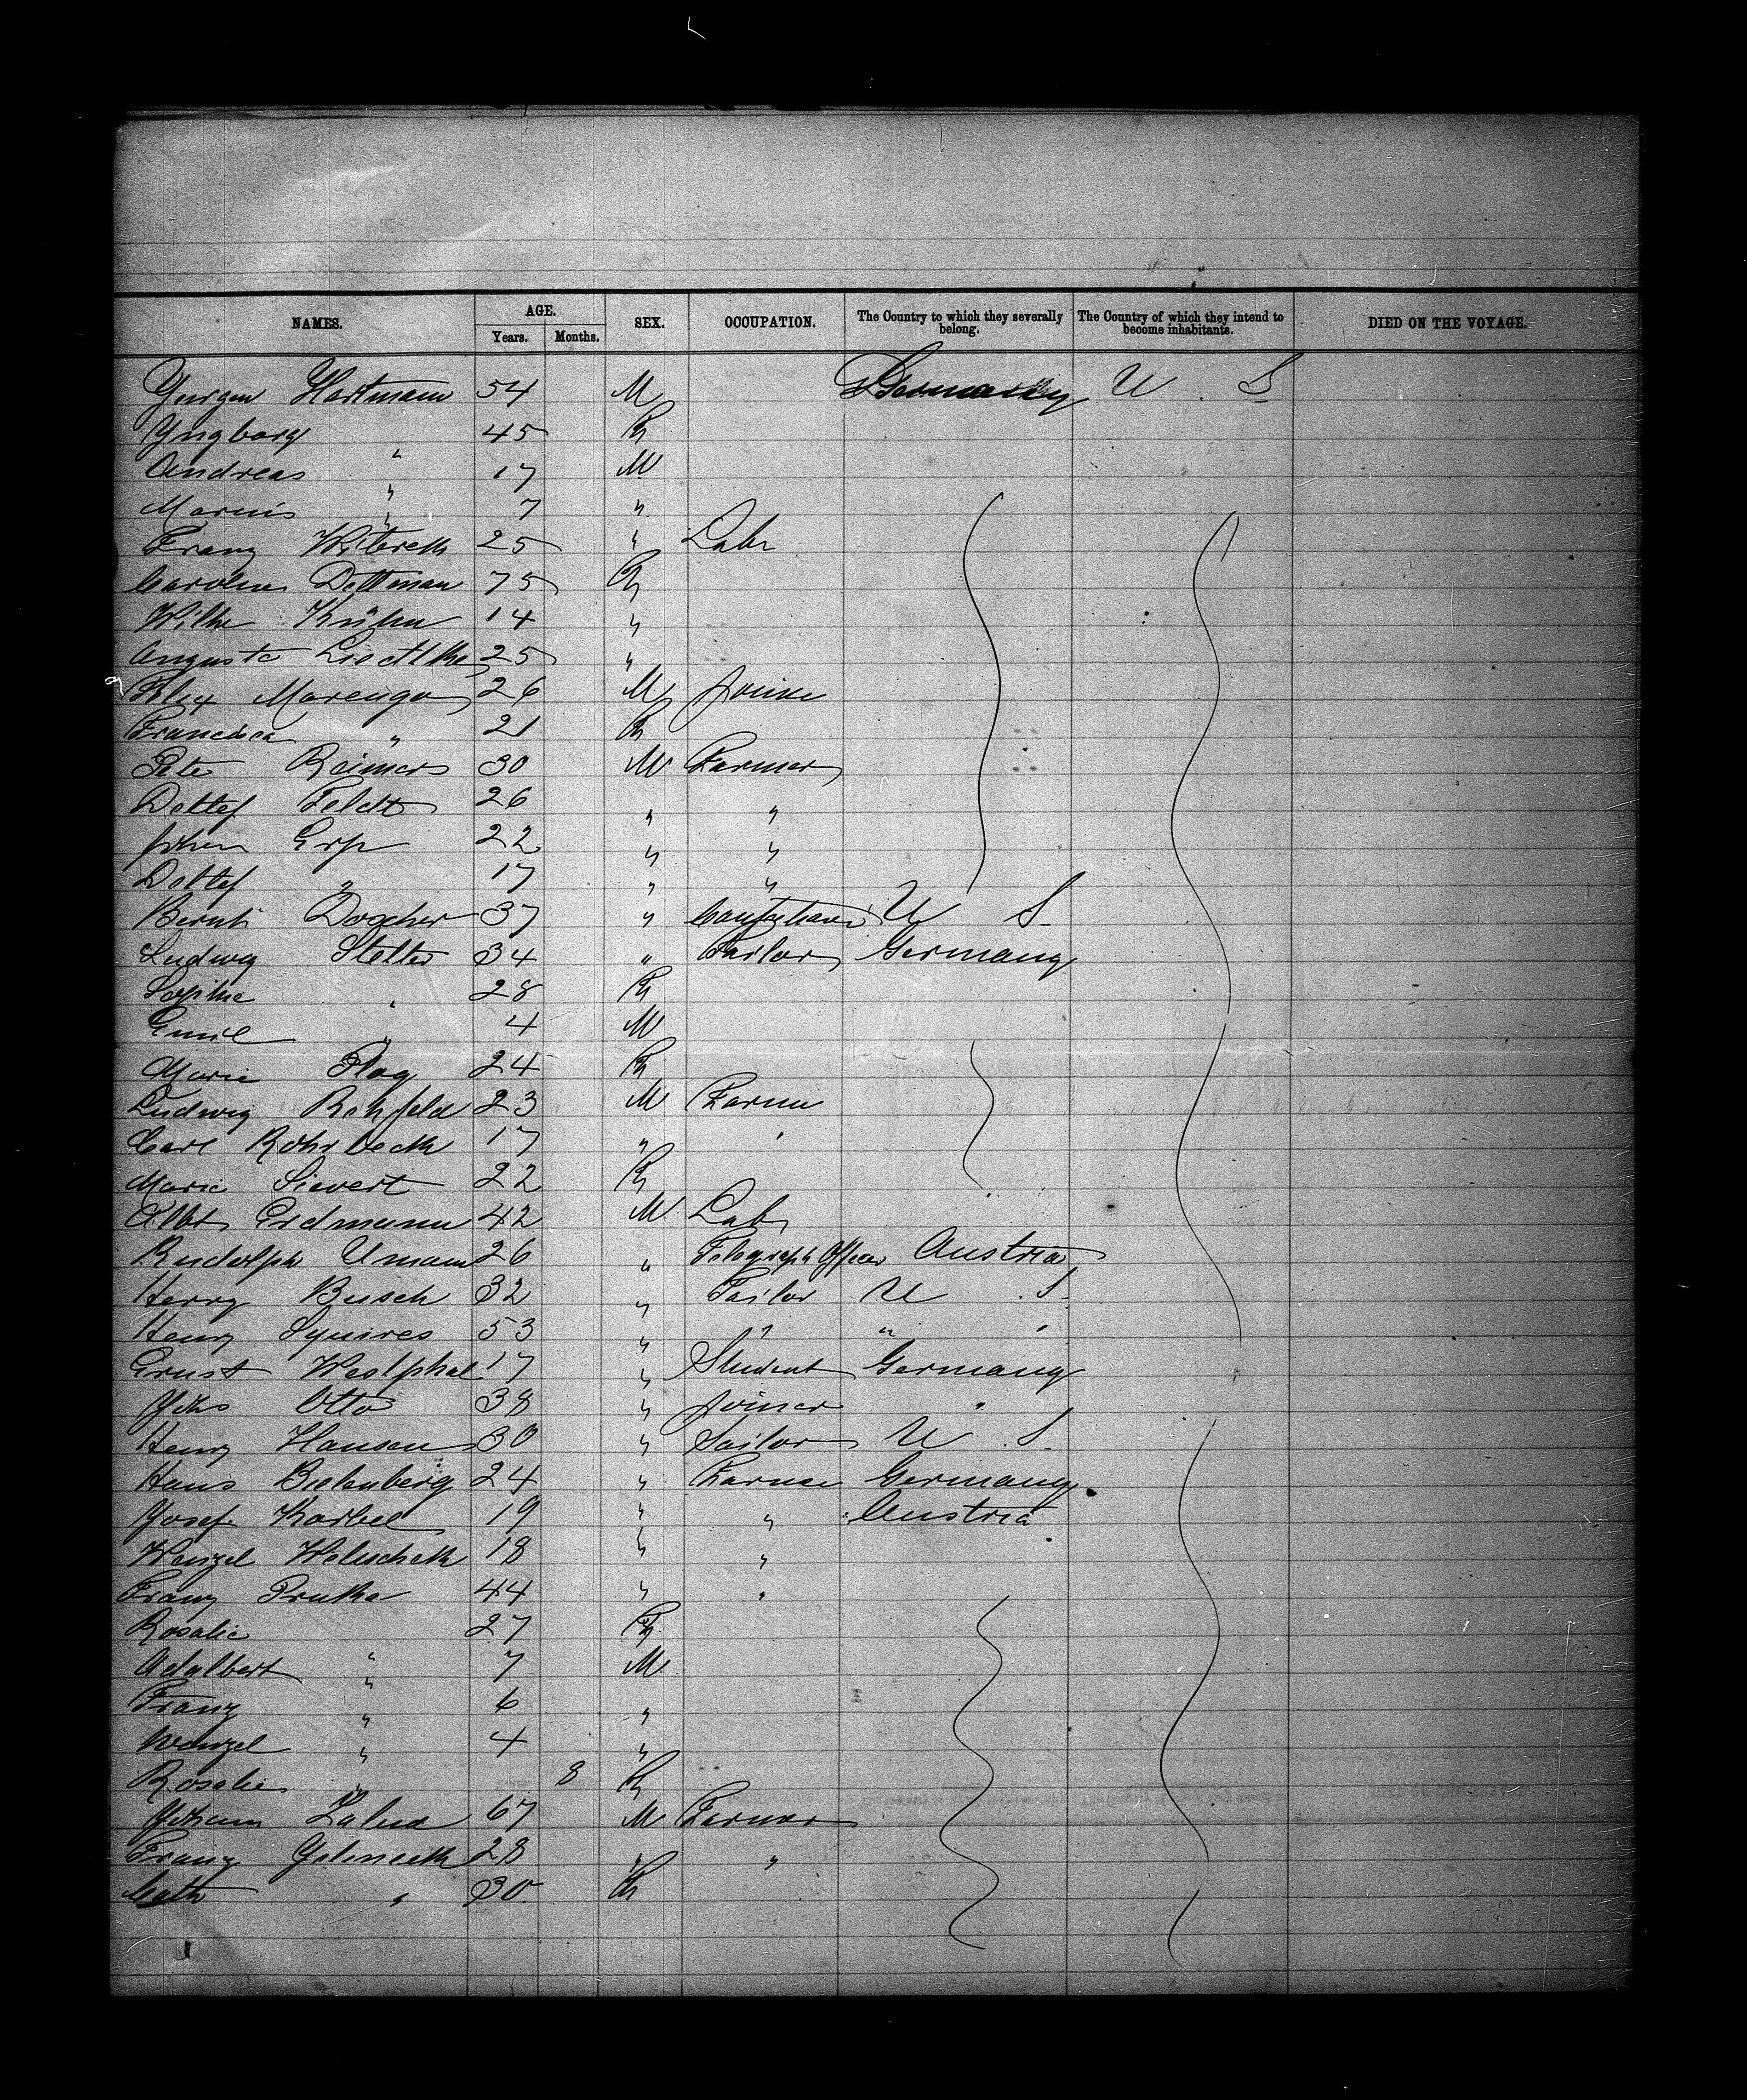 NAMES. AGE. Years. Months. SEX. OCCUPATION. The Country to which they severally belong. The Country of which they intend to become inhabitants. DIED ON THE VOYAGE.
Yurgen Hartmann 54 M Germany U. S
Yngborg " 45 F
Andreas " 17 M
Marius " 7 "
Franz 25 " Labr
Caroline Dettman 75 F
Wilhe Kühn 14 "
Auguste Liedtke 25 "
Alex Marengo 26 M Joiner
Francisca " 21 F
Peter Reimers 30 M Farmer
Detlef Feldt 26 " "
Johan Erp 22 " "
Detlef " 17 " "
Bernh Doscher 37 " U S
Ludwig Stelter 34 " Tailor Germany
Sophie " 28 F
Emil " 4 M
Marie Plog 24 F
Ludwig Rehfeld 23 M Farme
Carl Rohrbeck 17 " "
Marie Sievert 22 F
Albt Erdmann 42 M Labr
Rudolph Umann 26 " Telegraph Officer Austria
Herry Busch 32 " Tailor U. S.
Henry Squires 53 " " " "
Ernst Westphal 17 " Student Germany
Johs Otto 38 " Joiner "
Henry Hansen 30 " Sailor U. S.
Hans Bielenberg 24 " Farme Germany
Josef Karbel 19 " " Austria
Wenzel 18 " "
Franz Pruka 44 " "
Rosalie " 27 F
Adalbert " 7 M
Franz " 6 "
Wenzel " 4 "
Rosalie " 8 F
Johann Zalud 67 M Farmer
Franz 28 " "
Cath " 30 F